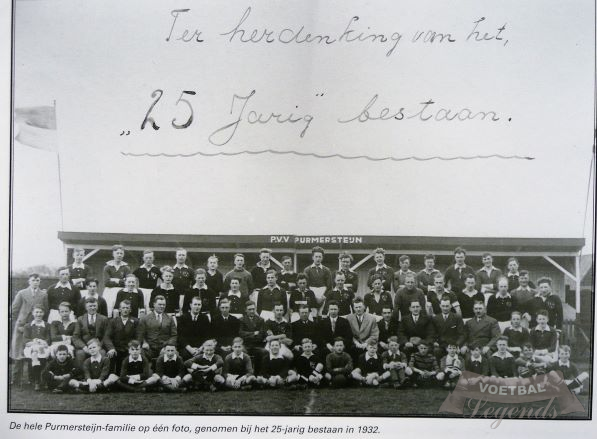 Ter herdenking van het,
„25 Jarig" bestaan.
P.V.V PURMERSTEIJN
VOETBAL
Legends
De hele Purmersteijn-familie op één foto, genomen bij het 25-jarig bestaan in 1932.